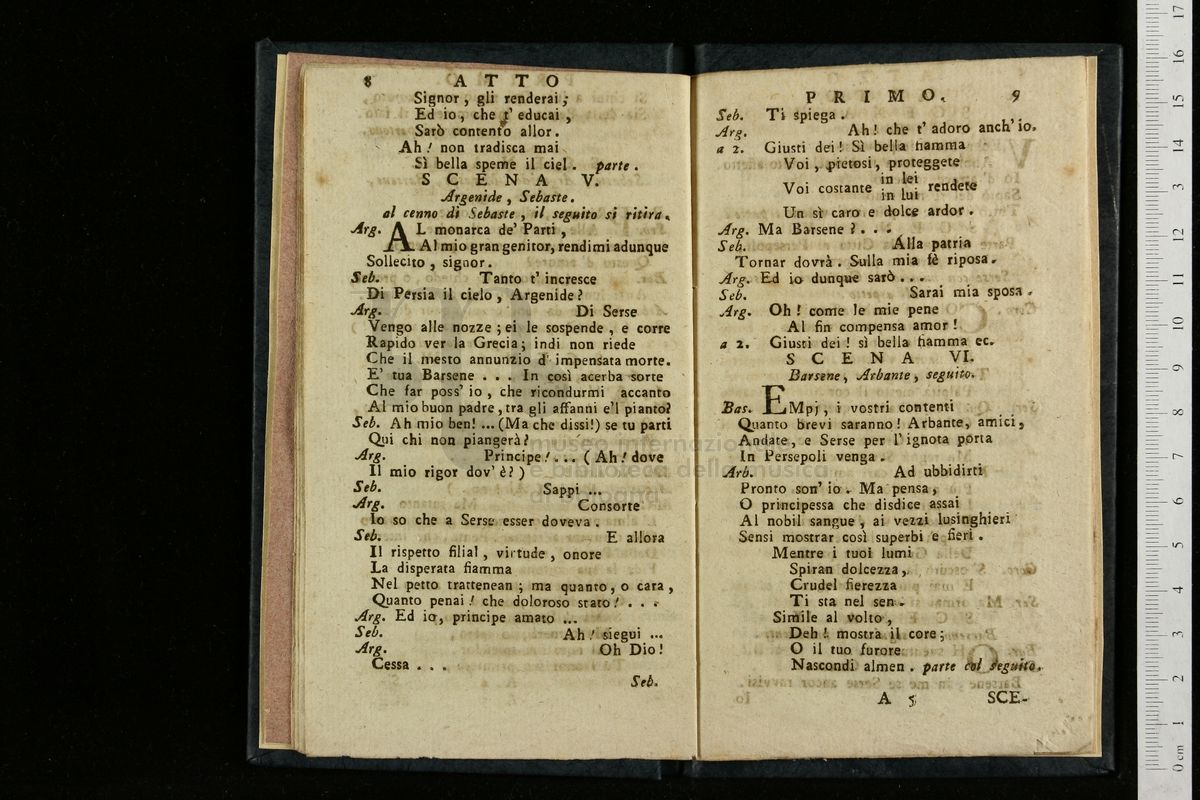 8 ATTO
Signor, gli renderai;
Ed io, che t' educai,
Sarò contento allor.
Ah! non tradisca mai
Sì bella speme il ciel. parte.
SCENA V.
Argenide, Sebaste.
al cenno di Sebaste, il seguito si ritira.
Arg. AL monarca de' Parti,
Al mio gran genitor, rendimi adunque
Sollecito, signor.
Seb. Tanto t' incresce
Di Persia il cielo, Argenide?
Arg. Di Serse
Vengo alle nozze; ei le sospende, e corre
Rapido ver la Grecia; indi non riede
Che il mesto annunzio d' impensata morte.
E' tua Barsene . . . In così acerba sorte
Che far poss' io, che ricondurmi accanto
Al mio buon padre, tra gli affanni e'l pianto?
Seb. Ah mio ben! ... (Ma che dissi!) se tu parti
Qui chi non piangerà?
Arg. Principe! ... (Ah! dove
Il mio rigor dov' è?)
Seb. Sappi ...
Arg. Consorte
Io so che a Serse esser doveva.
Seb. E allora
Il rispetto filial, virtude, onore
La disperata fiamma
Nel petto trattenean; ma quanto, o cara,
Quanto penai! che doloroso stato! . . .
Arg. Ed io, principe amato ...
Seb. Ah! siegui ...
Arg. Oh Dio!
Cessa . . .
Seb.
PRIMO. 9
Seb. Ti spiega.
Arg. Ah! che t' adoro anch' io.
a 2. Giusti dei! Sì bella fiamma
Voi, pietosi, proteggete
Voi costante in lei rendete
in lui
Un sì caro e dolce ardor.
Arg. Ma Barsene? . . .
Seb. Alla patria
Tornar dovrà. Sulla mia fè riposa.
Arg. Ed io dunque sarò . . .
Seb. Sarai mia sposa.
Arg. Oh! come le mie pene
Al fin compensa amor!
a 2. Giusti dei! sì bella fiamma ec.
SCENA VI.
Barsene, Arbante, seguito.
Bas. EMpj, i vostri contenti
Quanto brevi saranno! Arbante, amici,
Andate, e Serse per l' ignota porta
In Persepoli venga.
Arb. Ad ubbidirti
Pronto son' io. Ma pensa,
O principessa che disdice assai
Al nobil sangue, ai vezzi lusinghieri
Sensi mostrar così superbi e fieri.
Mentre i tuoi lumi
Spiran dolcezza,
Crudel fierezza
Ti sta nel sen.
Simile al volto,
Deh! mostra il core;
O il tuo furore
Nascondi almen. parte col seguito.
A 5 SCE-
museo internazionale
e biblioteca della musica
di bologna
0 cm 1 2 3 4 5 6 7 8 9 10 11 12 13 14 15 16 17